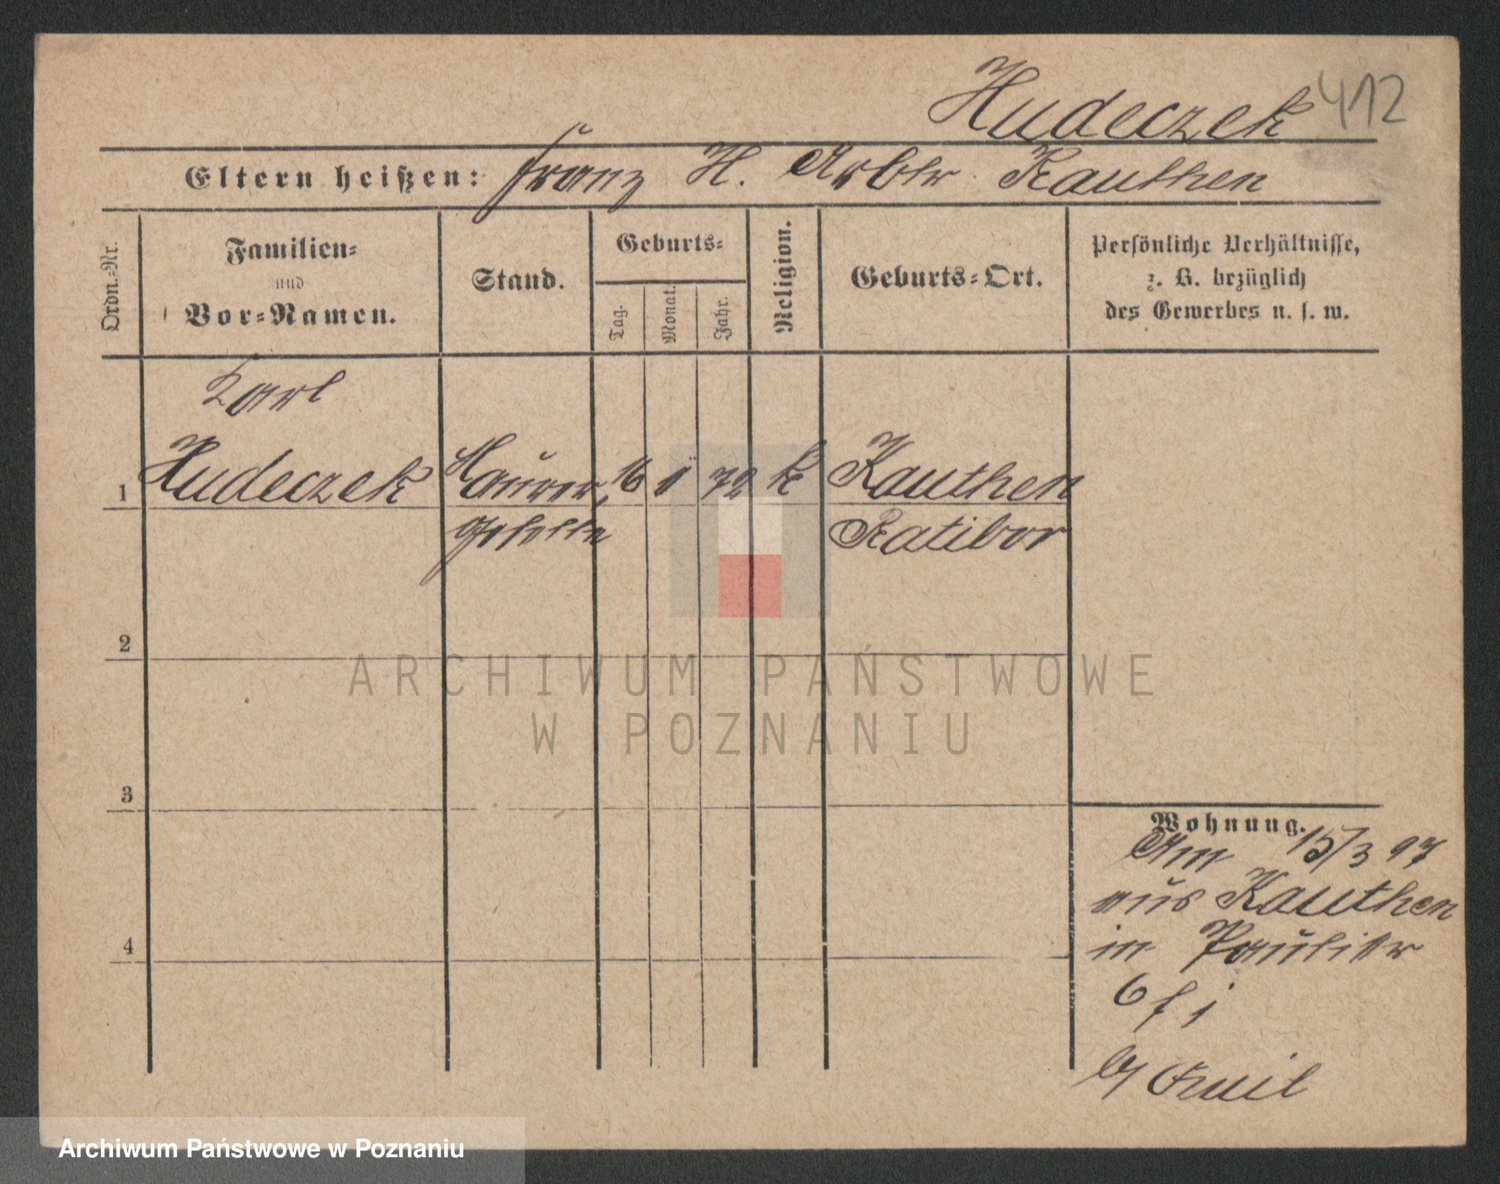 Hudeczek 412
Eltern heißen: Franz H. Arbtr. Kauthen
Ordn.-Nr.
Familien-
und
Vor-Namen.
Stand.
Geburts-
Tag.
Monat.
Jahr.
Religion.
Geburts-Ort.
Persönliche Verhältnisse,
z. B. bezüglich
des Gewerbes u. s. w.
Karl
1 Hudeczek Maurer 16 72 k Kauthen
geselle Ratibor
2
3
4
Wohnung.
Am 15/3 97
aus Kauthen
in
6
ARCHIWUM PAŃSTWOWE
W POZNANIU
Archiwum Państwowe w Poznaniu